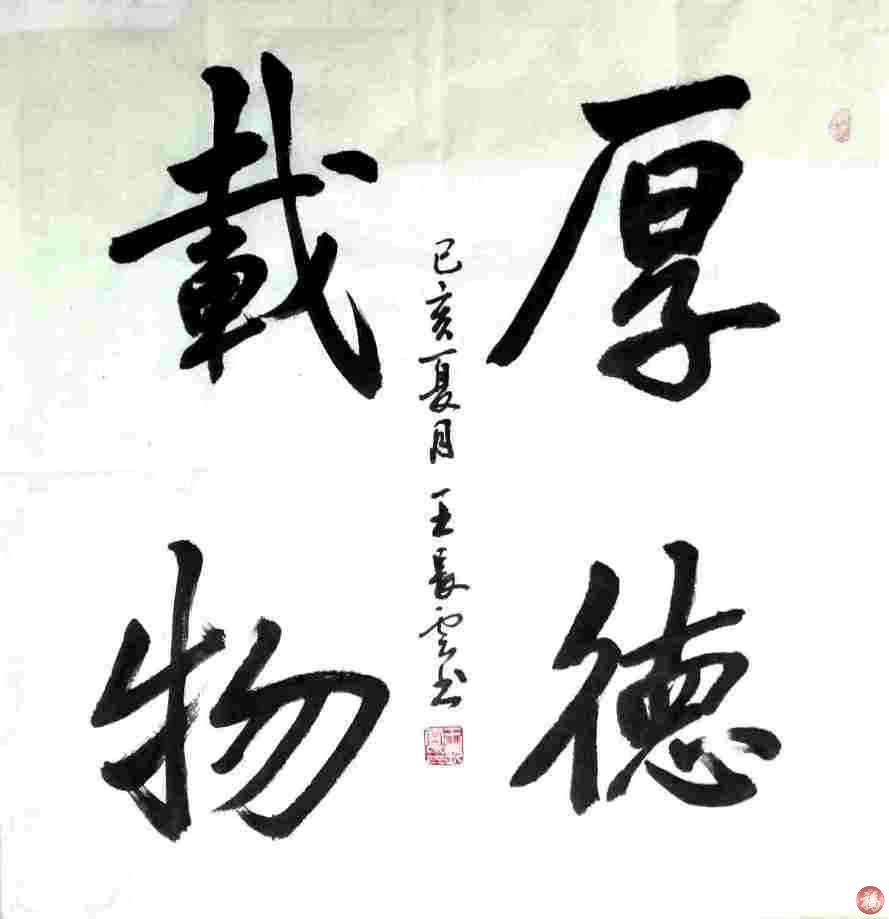 厚德
載物
己亥夏月 王長雲书
福